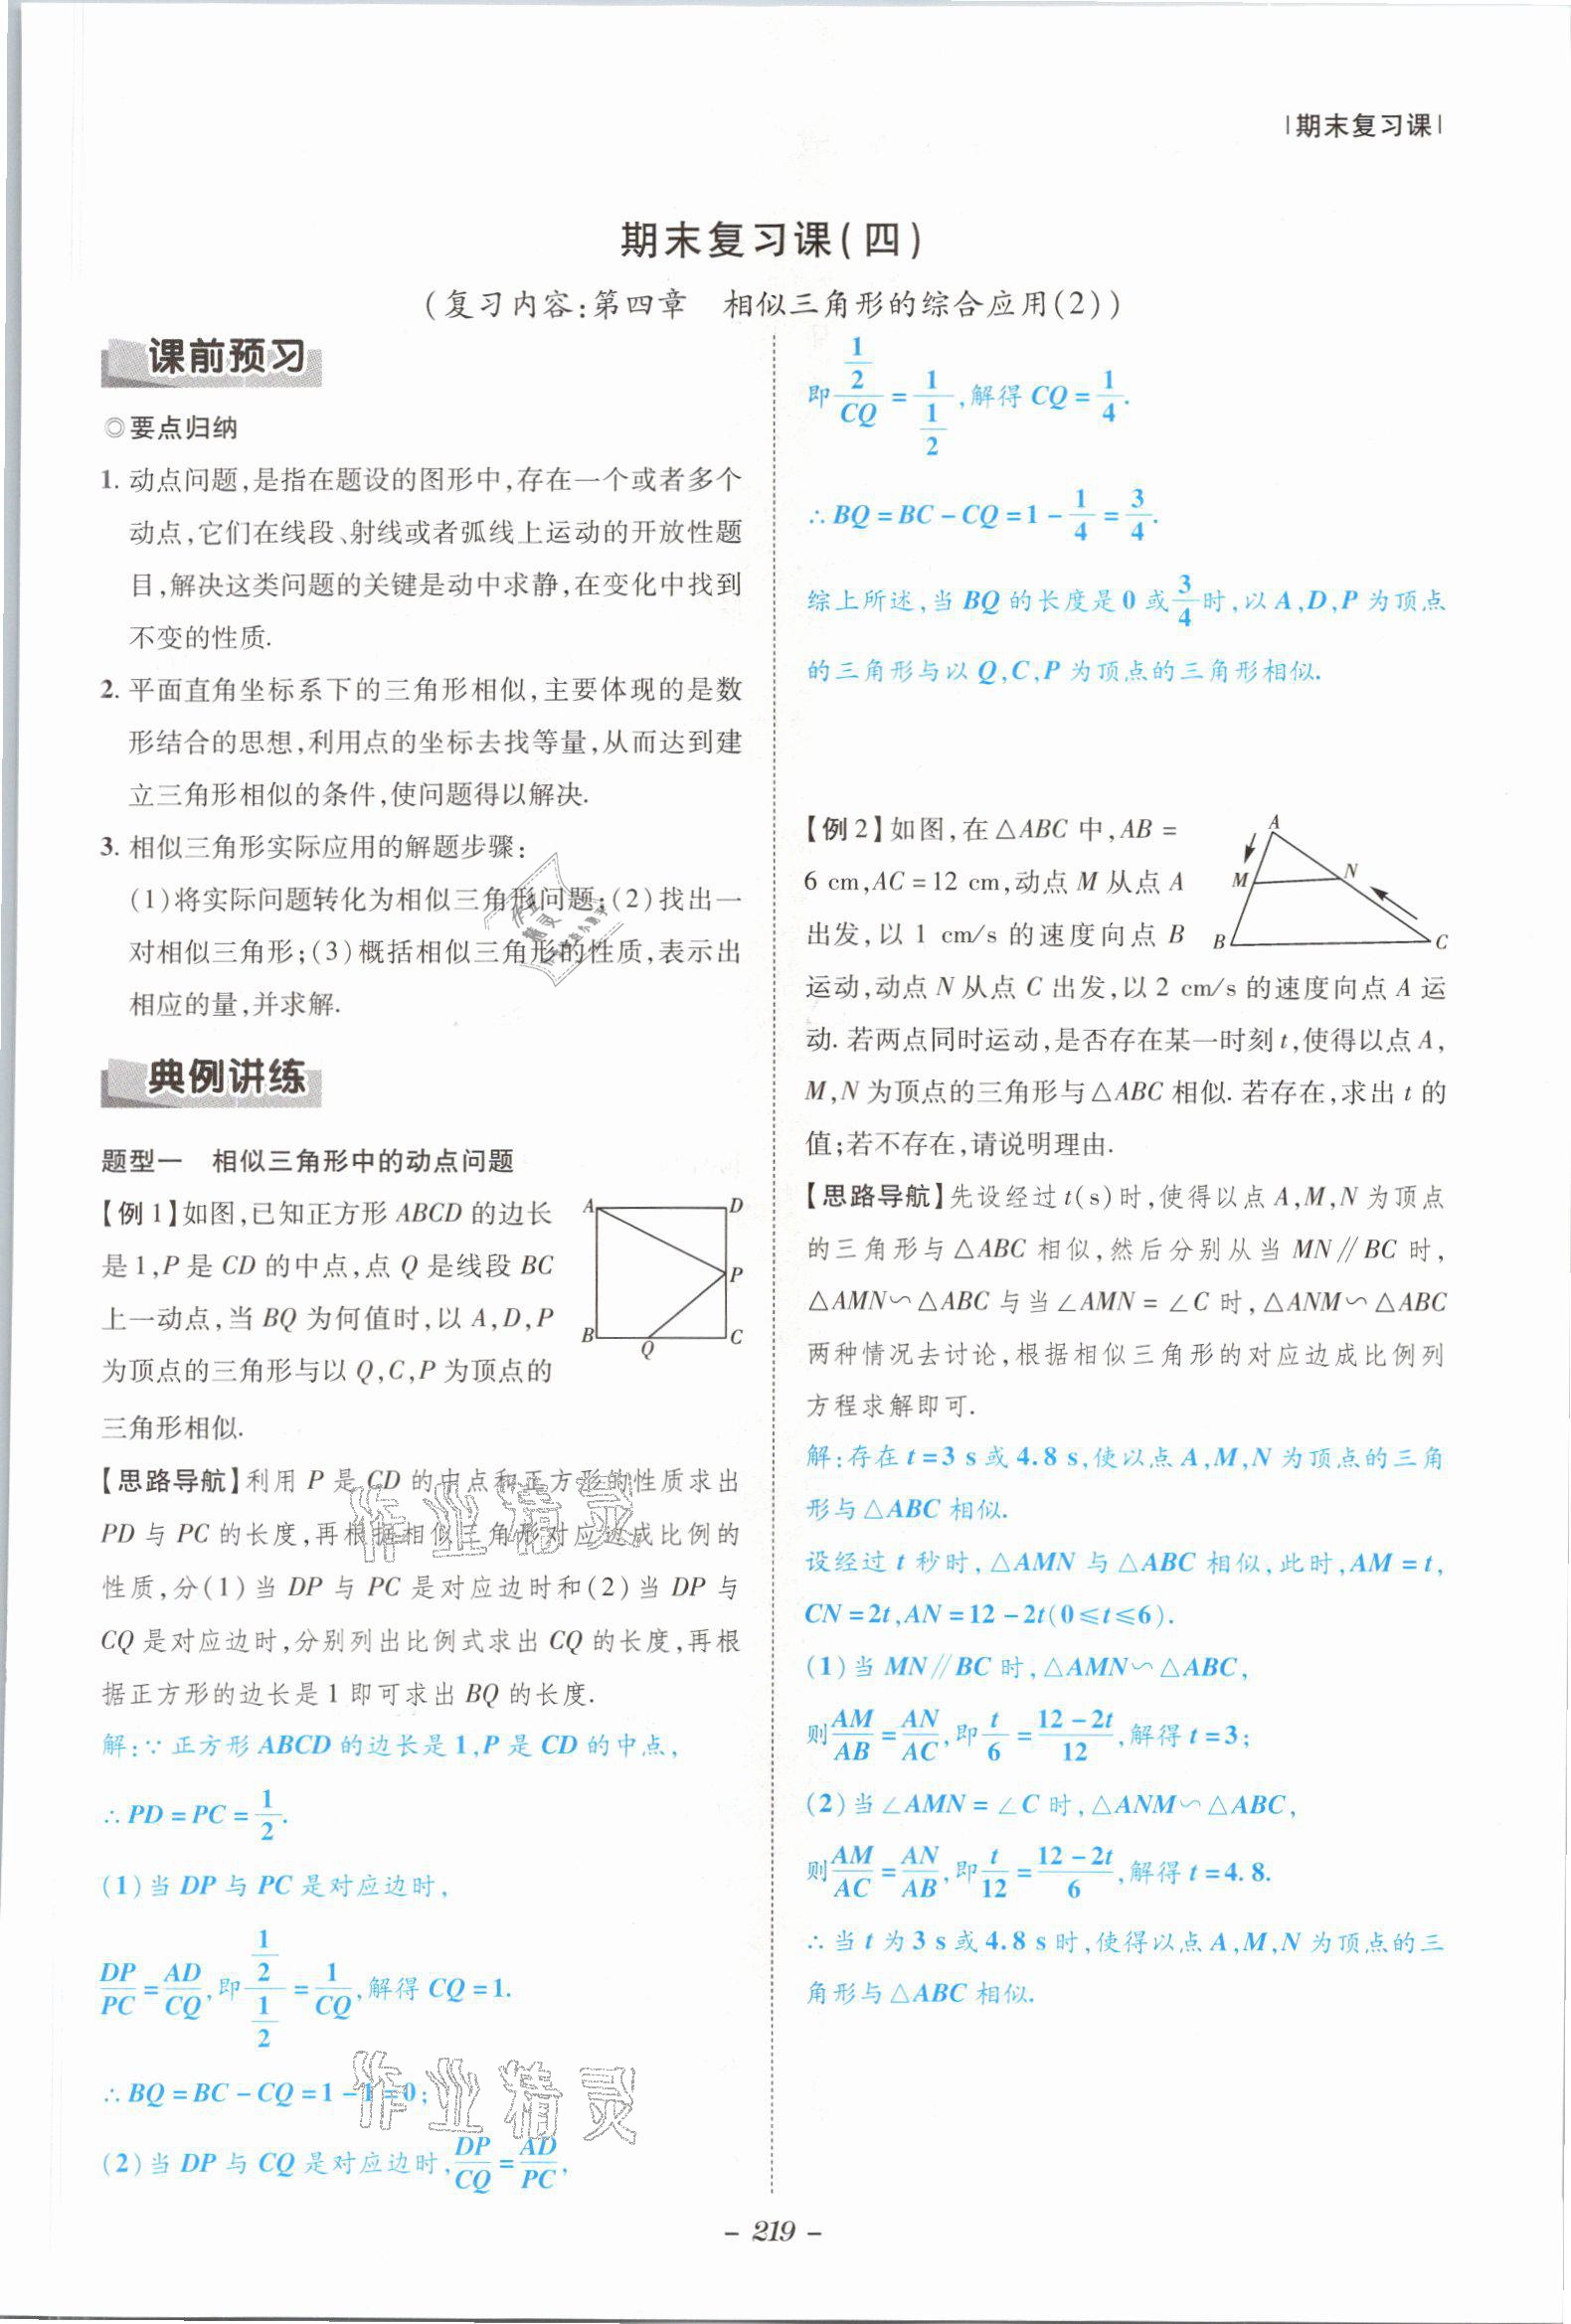 |期末复习课|
期末复习课(四)
(复习内容:第四章 相似三角形的综合应用(2))
课前预习
◎要点归纳
1. 动点问题,是指在题设的图形中,存在一个或者多个
动点,它们在线段、射线或者弧线上运动的开放性题
目,解决这类问题的关键是动中求静,在变化中找到
不变的性质.
2. 平面直角坐标系下的三角形相似,主要体现的是数
形结合的思想,利用点的坐标去找等量,从而达到建
立三角形相似的条件,使问题得以解决.
3. 相似三角形实际应用的解题步骤:
(1)将实际问题转化为相似三角形问题;(2)找出一
对相似三角形;(3)概括相似三角形的性质,表示出
相应的量,并求解.
典例讲练
题型一 相似三角形中的动点问题
【例1】如图,已知正方形 ABCD 的边长
是1,P 是 CD 的中点,点 Q 是线段 BC
上一动点,当 BQ 为何值时,以 A,D,P
为顶点的三角形与以 Q,C,P 为顶点的
三角形相似.
A D
P
B Q C
【思路导航】利用 P 是 CD 的中点和正方形的性质求出
PD 与 PC 的长度,再根据相似三角形对应边成比例的
性质,分(1)当 DP 与 PC 是对应边时和(2)当 DP 与
CQ 是对应边时,分别列出比例式求出 CQ 的长度,再根
据正方形的边长是1即可求出 BQ 的长度.
解:∵正方形 ABCD 的边长是1,P 是 CD 的中点,
∴PD=PC=1/2.
(1)当 DP 与 PC 是对应边时,
DP/PC=AD/CQ,即(1/2)/(1/2)=1/CQ,解得 CQ=1.
∴BQ=BC-CQ=1-1=0;
(2)当 DP 与 CQ 是对应边时,DP/CQ=AD/PC,
即(1/2)/CQ=1/(1/2),解得 CQ=1/4.
∴BQ=BC-CQ=1-1/4=3/4.
综上所述,当 BQ 的长度是0或3/4时,以 A,D,P 为顶点
的三角形与以 Q,C,P 为顶点的三角形相似.
【例2】如图,在△ABC 中,AB=
6 cm,AC=12 cm,动点 M 从点 A
出发,以 1 cm/s 的速度向点 B
运动,动点 N 从点 C 出发,以 2 cm/s 的速度向点 A 运
动.若两点同时运动,是否存在某一时刻 t,使得以点 A,
M,N 为顶点的三角形与△ABC 相似.若存在,求出 t 的
值;若不存在,请说明理由.
A
M N
B C
【思路导航】先设经过 t(s)时,使得以点 A,M,N 为顶点
的三角形与△ABC 相似,然后分别从当 MN∥BC 时,
△AMN∽△ABC 与当∠AMN=∠C 时,△ANM∽△ABC
两种情况去讨论,根据相似三角形的对应边成比例列
方程求解即可.
解:存在 t=3 s 或 4.8 s,使以点 A,M,N 为顶点的三角
形与△ABC 相似.
设经过 t 秒时,△AMN 与△ABC 相似,此时,AM=t,
CN=2t,AN=12-2t(0≤t≤6).
(1)当 MN∥BC 时,△AMN∽△ABC,
则AM/AB=AN/AC,即t/6=(12-2t)/12,解得 t=3;
(2)当∠AMN=∠C 时,△ANM∽△ABC,
则AM/AC=AN/AB,即t/12=(12-2t)/6,解得 t=4.8.
∴当 t 为 3 s 或 4.8 s 时,使得以点 A,M,N 为顶点的三
角形与△ABC 相似.
作业精灵
作业精灵
- 219 -